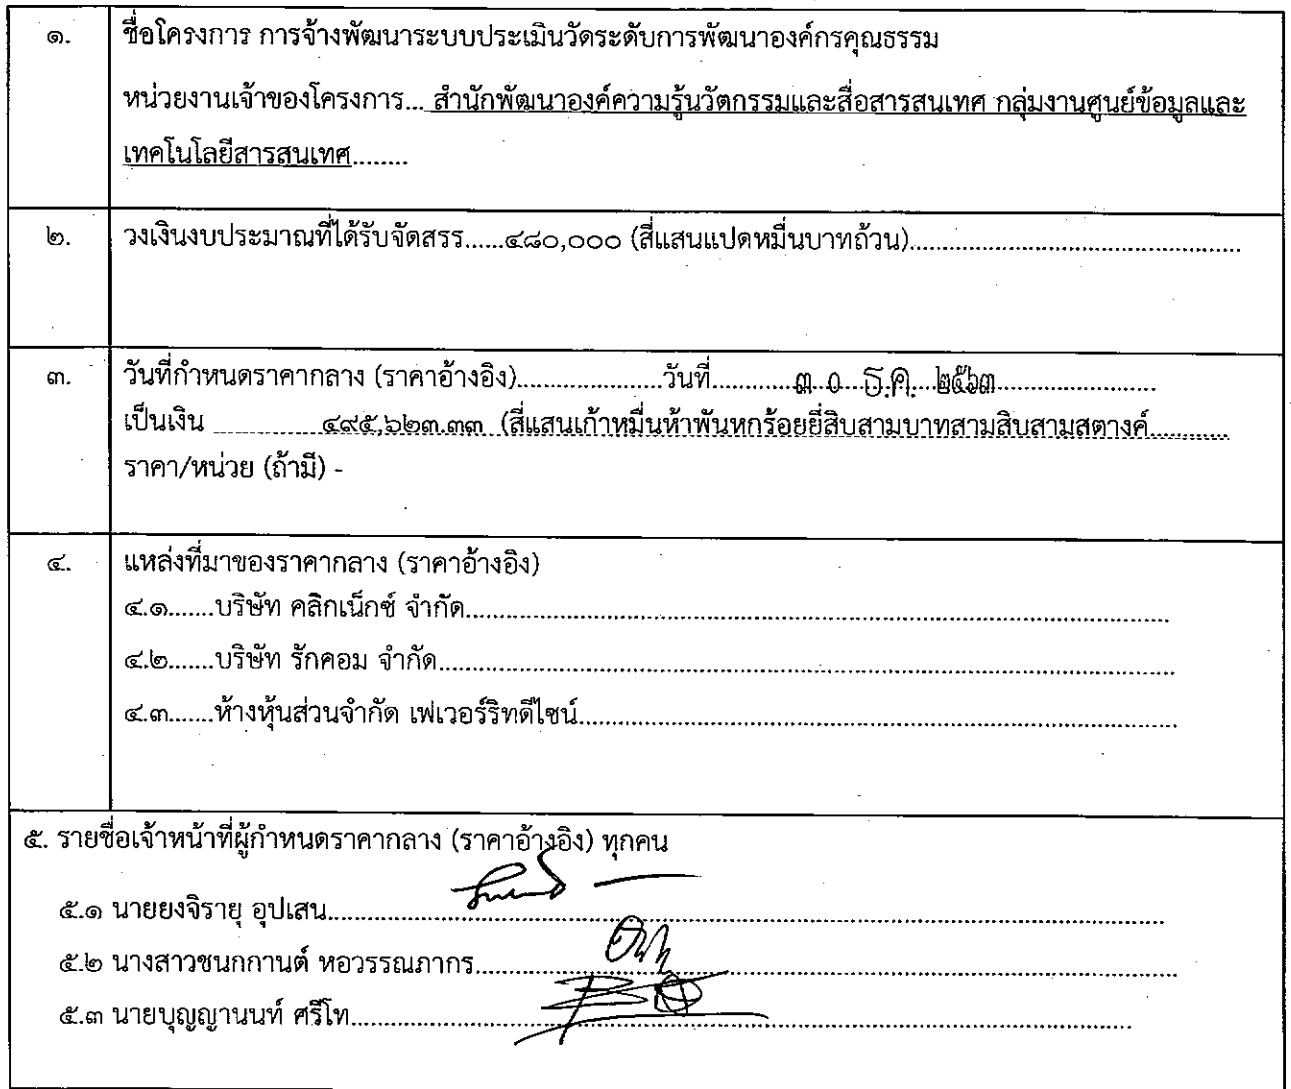 ๑. ชื่อโครงการ การจ้างพัฒนาระบบประเมินวัดระดับการพัฒนาองค์กรคุณธรรม
หน่วยงานเจ้าของโครงการ... สำนักพัฒนาองค์ความรู้นวัตกรรมและสื่อสารสนเทศ กลุ่มงานศูนย์ข้อมูลและ
เทคโนโลยีสารสนเทศ........
๒. วงเงินงบประมาณที่ได้รับจัดสรร......๔๘๐,๐๐๐ (สี่แสนแปดหมื่นบาทถ้วน)..................................................
๓. วันที่กำหนดราคากลาง (ราคาอ้างอิง)......................วันที่............๓ ๐ ธ.ค. ๒๕๖๓........................
เป็นเงิน ................๔๙๕,๖๒๓.๓๓ (สี่แสนเก้าหมื่นห้าพันหกร้อยยี่สิบสามบาทสามสิบสามสตางค์............
ราคา/หน่วย (ถ้ามี) -
๔. แหล่งที่มาของราคากลาง (ราคาอ้างอิง)
๔.๑.......บริษัท คลิกเน็กซ์ จำกัด..........................................................................................
๔.๒.......บริษัท รักคอม จำกัด..............................................................................................
๔.๓.......ห้างหุ้นส่วนจำกัด เฟเวอร์ริทดีไซน์........................................................................
๕. รายชื่อเจ้าหน้าที่ผู้กำหนดราคากลาง (ราคาอ้างอิง) ทุกคน
๕.๑ นายยงจิรายุ อุปเสน..................................................................................................
๕.๒ นางสาวชนกกานต์ หอวรรณภากร................................................................................
๕.๓ นายบุญญานนท์ ศรีโท..............................................................................................